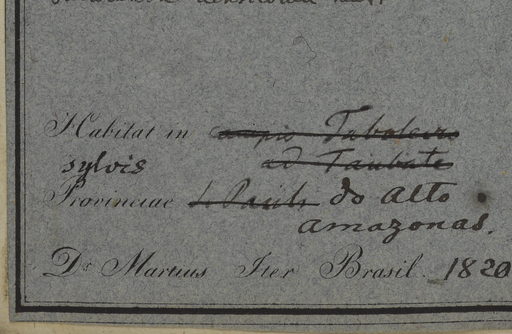 Habitat in campis Taboleiro
sylvis ad Taubate
Provinciae S. Pauli do alto
amazonas.
Dr. Martius Iter Brasil. 1820